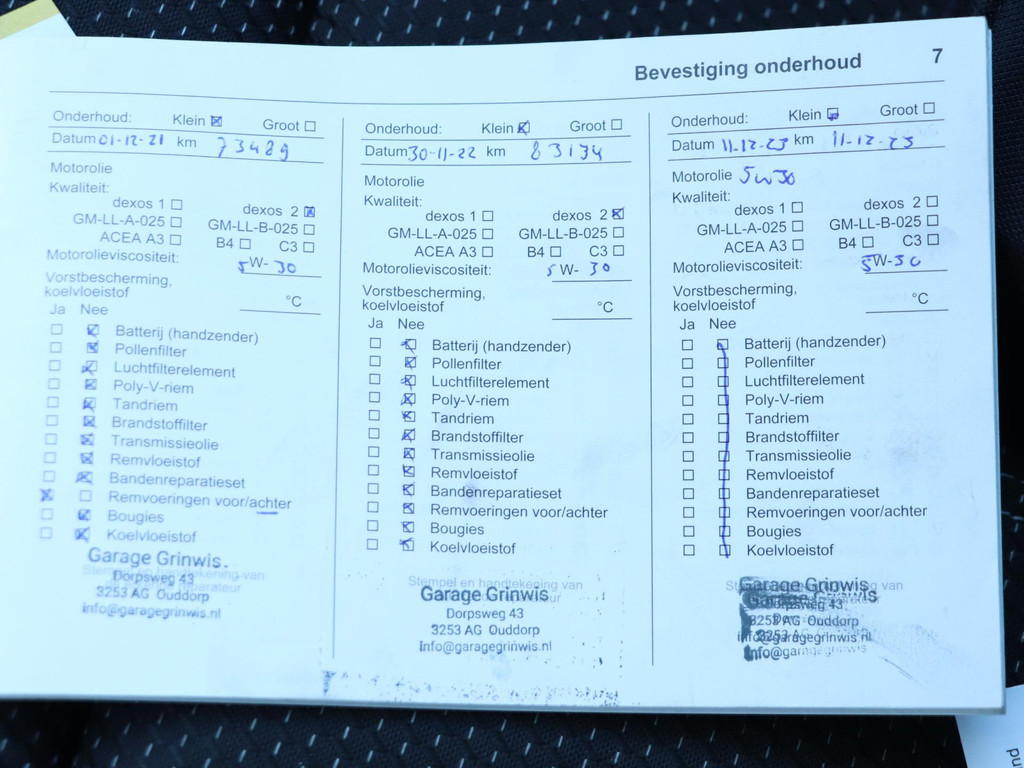 Bevestiging onderhoud 7
Onderhoud: Klein Groot
Datum 01-12-21 km 73489
Motorolie
Kwaliteit:
dexos 1 dexos 2
GM-LL-A-025 GM-LL-B-025
ACEA A3 B4 C3
Motorolieviscositeit: 5W-30
Vorstbescherming,
koelvloeistof °C
Ja Nee
Batterij (handzender)
Pollenfilter
Luchtfilterelement
Poly-V-riem
Tandriem
Brandstoffilter
Transmissieolie
Remvloeistof
Bandenreparatieset
Remvoeringen voor/achter
Bougies
Koelvloeistof
Garage Grinwis.
Stempel en handtekening van
Dorpsweg 43
3253 AG Ouddorp
info@garagegrinwis.nl
Onderhoud: Klein Groot
Datum 30-11-22 km 83134
Motorolie
Kwaliteit:
dexos 1 dexos 2
GM-LL-A-025 GM-LL-B-025
ACEA A3 B4 C3
Motorolieviscositeit: 5W-30
Vorstbescherming,
koelvloeistof °C
Ja Nee
Batterij (handzender)
Pollenfilter
Luchtfilterelement
Poly-V-riem
Tandriem
Brandstoffilter
Transmissieolie
Remvloeistof
Bandenreparatieset
Remvoeringen voor/achter
Bougies
Koelvloeistof
Stempel en handtekening van
Garage Grinwis
Dorpsweg 43
3253 AG Ouddorp
info@garagegrinwis.nl
Onderhoud: Klein Groot
Datum 11-12-23 km 11-12-23
Motorolie 5W30
Kwaliteit:
dexos 1 dexos 2
GM-LL-A-025 GM-LL-B-025
ACEA A3 B4 C3
Motorolieviscositeit: 5W-30
Vorstbescherming,
koelvloeistof °C
Ja Nee
Batterij (handzender)
Pollenfilter
Luchtfilterelement
Poly-V-riem
Tandriem
Brandstoffilter
Transmissieolie
Remvloeistof
Bandenreparatieset
Remvoeringen voor/achter
Bougies
Koelvloeistof
Garage Grinwis
Dorpsweg 43
3253 AG Ouddorp
info@garagegrinwis.nl